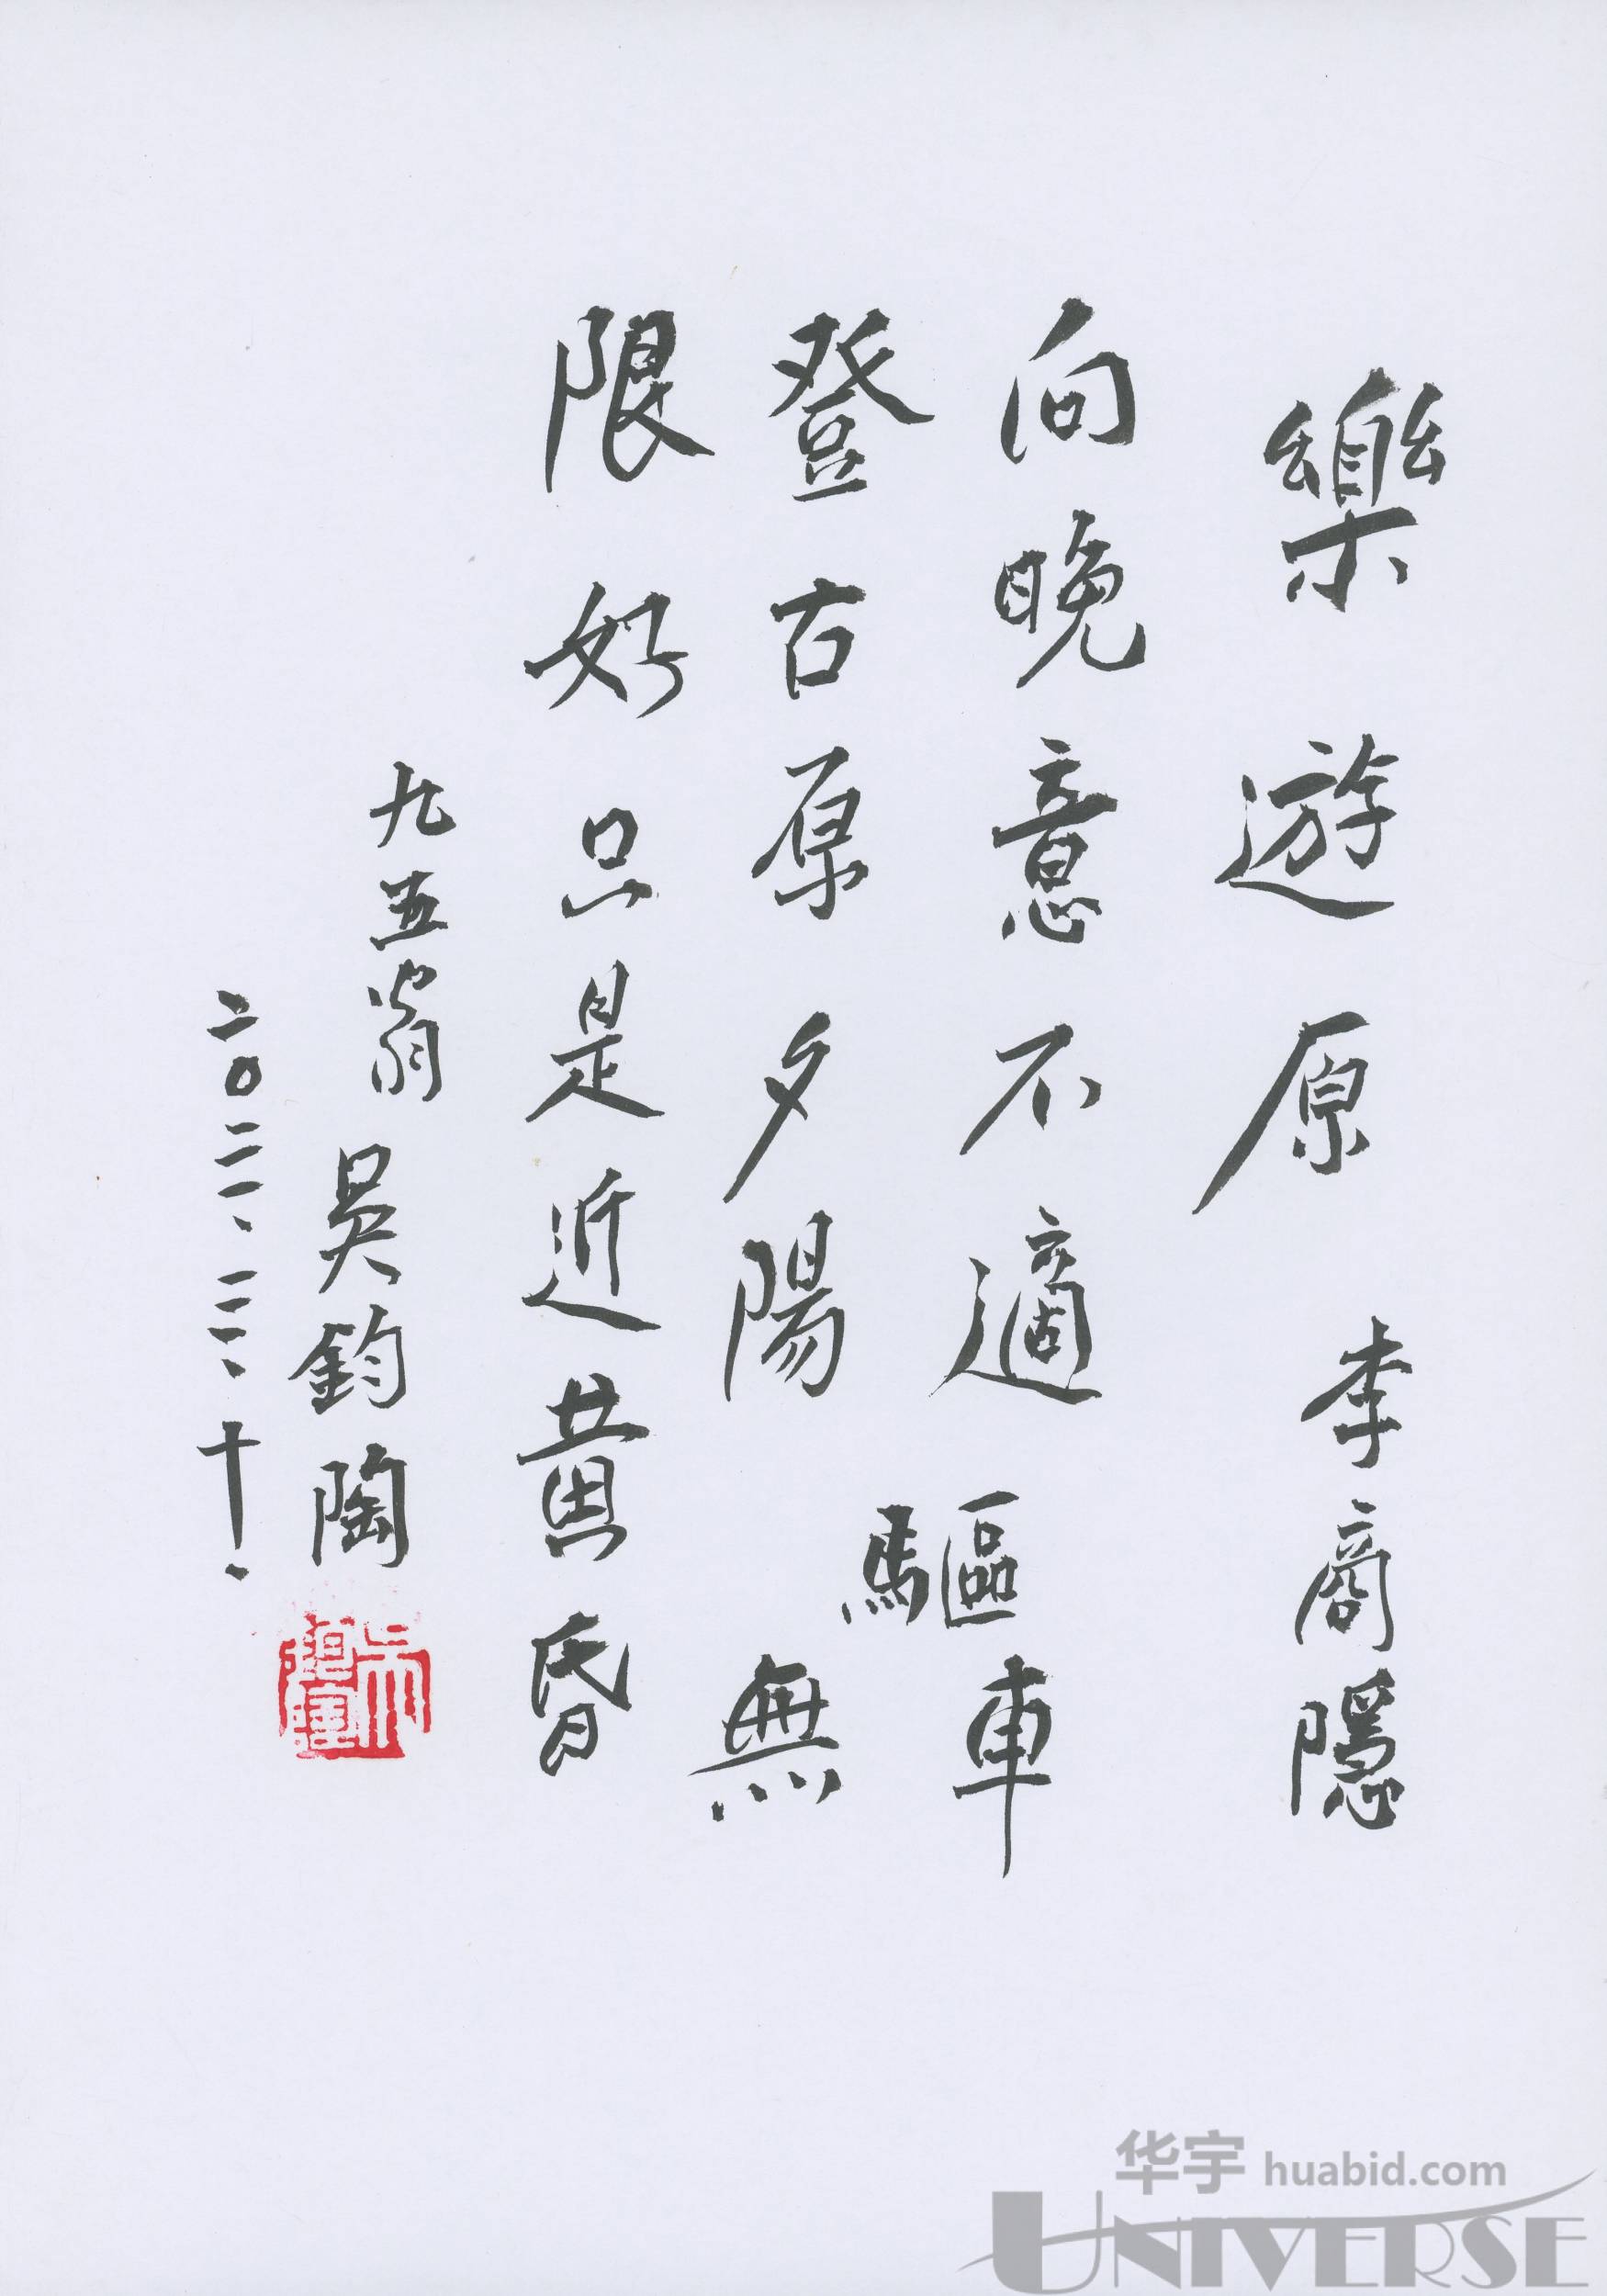 樂遊原 李商隱
向晚意不適驅車
登古原夕陽無
限好只是近黄昏
九五翁 吳鈞陶
二〇二一、二二、十、
华宇 huabid.com
UNIVERSE